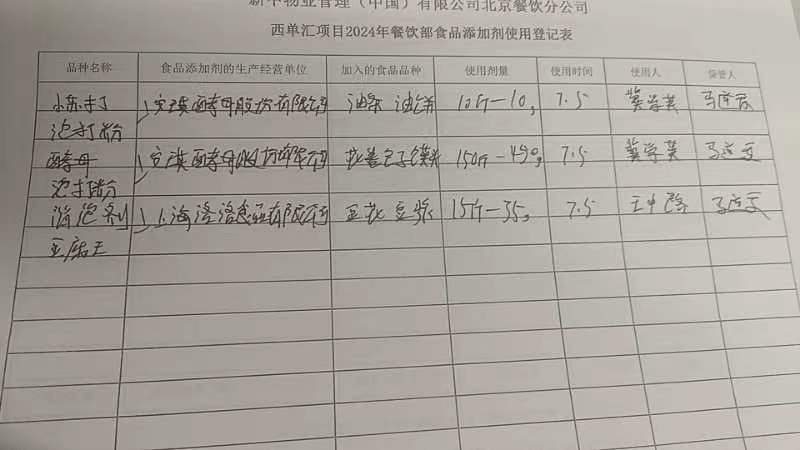 物业管理（中国）有限公司北京餐饮分公司
西单汇项目2024年餐饮部食品添加剂使用登记表
品种名称 食品添加剂的生产经营单位 加入的食品品种 使用剂量 使用时间 使用人 保管人
小苏打 安琪酵母股份有限公司 油条 油饼 10斤-10g 7.5
泡打粉
酵母 安琪酵母股份有限公司 包子 150斤-450g 7.5
泡打粉
消泡剂 上海 食品有限公司 豆浆 15斤-35g 7.5
豆腐王